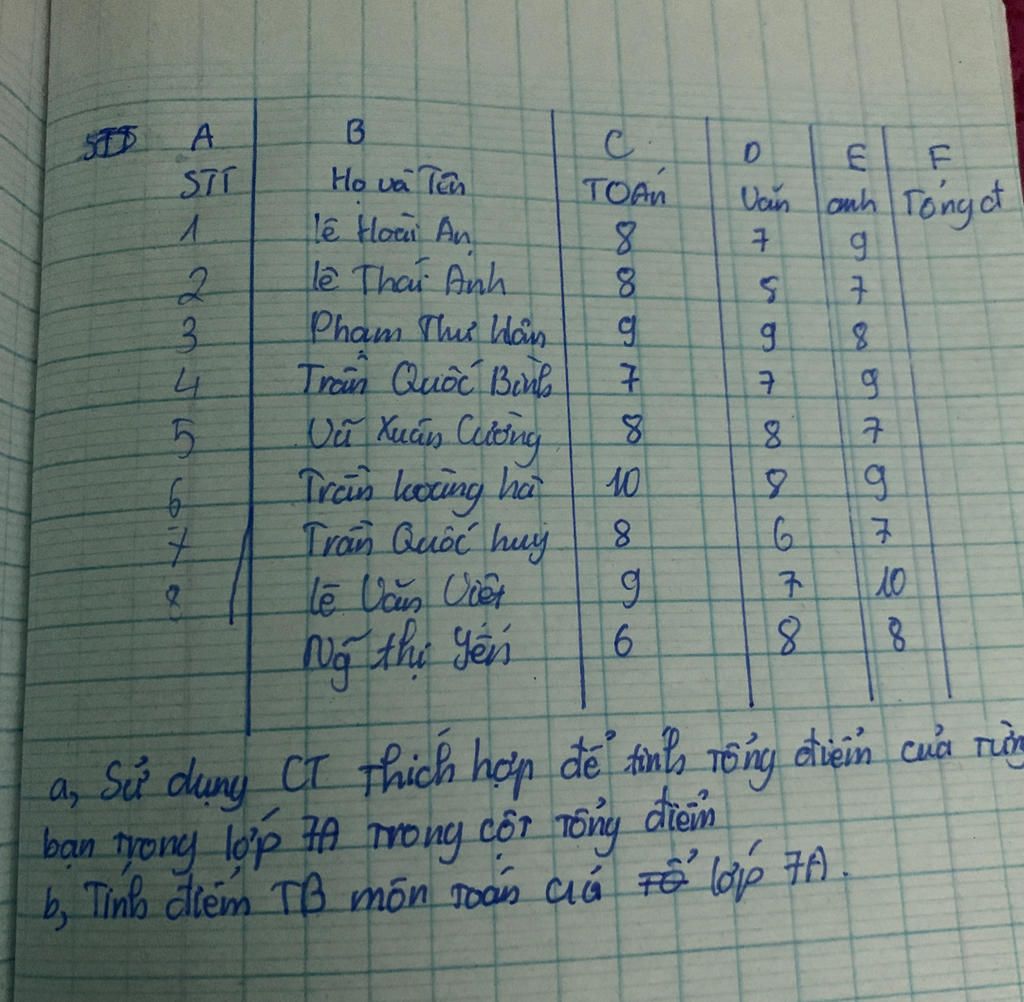 A B C D E F
STT Họ và Tên TOÁN Văn anh Tổng đ
1 lê Hoài An 8 7 9
2 lê Thái Anh 8 7
3 Phạm Thư Hân 9 9 8
4 Trần Quốc Bình 7 7 9
5 Vũ Xuân Cường 8 8 7
6 Trần hoàng hà 10 8 9
7 Trần Quốc huy 8 6 7
8 lê Văn Việt 9 7 10
Ng thị yến 6 8 8
a, Sử dụng CT Thích hợp để tính Tổng điểm của từng
bạn trong lớp 7A trong cột tổng điểm
b, Tính điểm TB môn toán của lớp 7A.